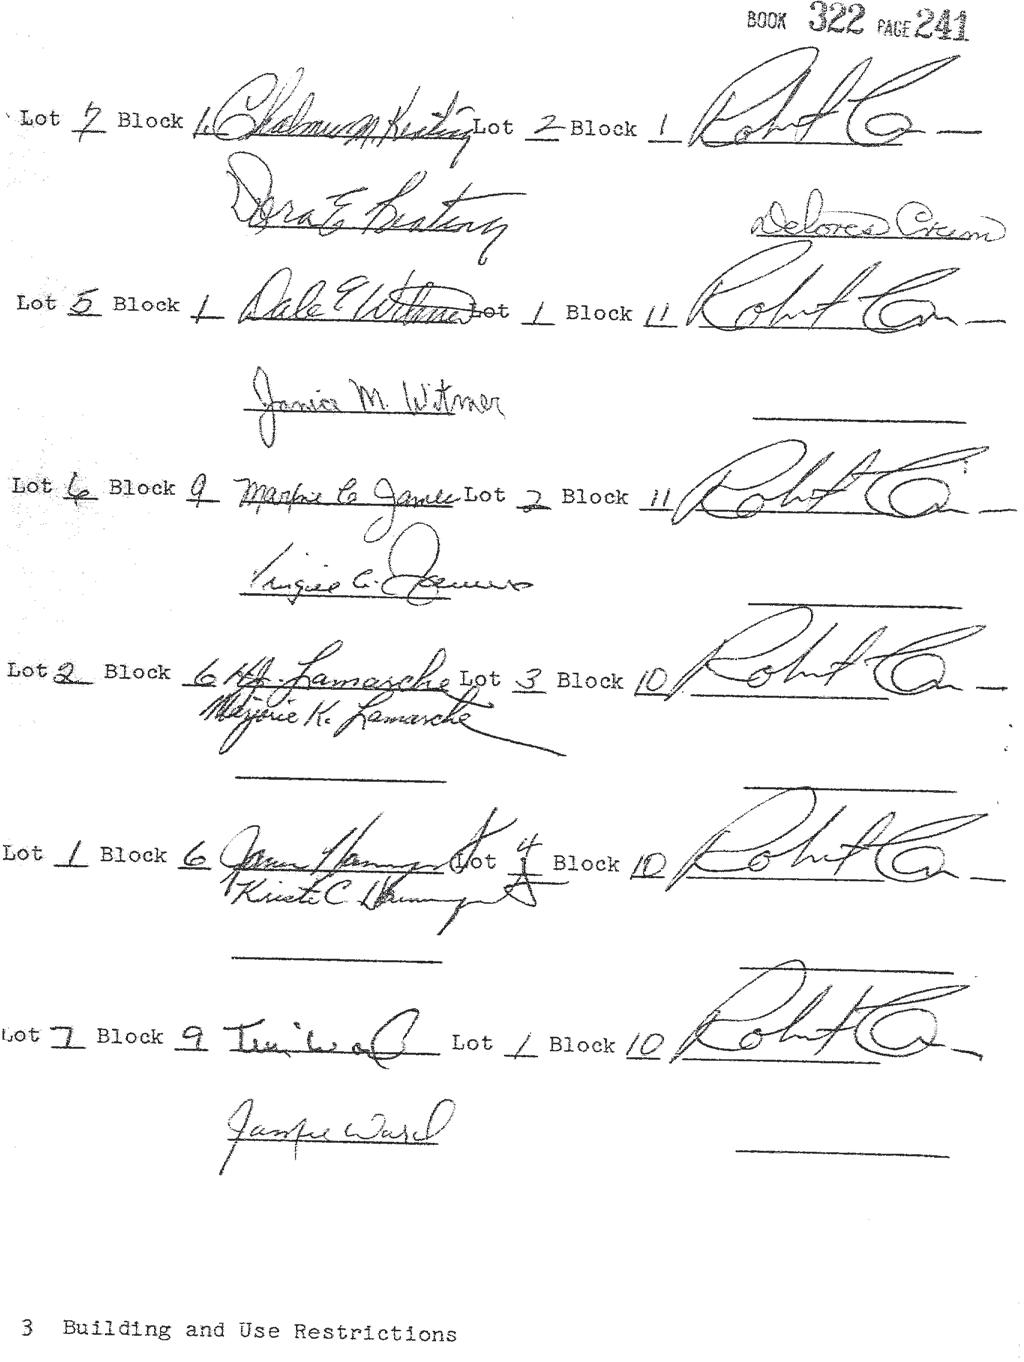 BOOK 322 PAGE 241
Lot 7 Block 1 Chalmer M. Keating Lot 2 Block 1 Robert
Dora E Keating Delores Crum
Lot 5 Block 1 Dale E Witmer Lot 1 Block 11 Robert
Janice M. Witmer
Lot 6 Block 9 James Lot 2 Block 11 Robert
C.
Lot 2 Block 6 Lamarsche Lot 3 Block 10 Robert
Marjorie K. Lamarsche
Lot 1 Block 6 Lot 4 Block 10 Robert
C.
Lot 7 Block 9 Lot 1 Block 10 Robert
Ward
3 Building and Use Restrictions